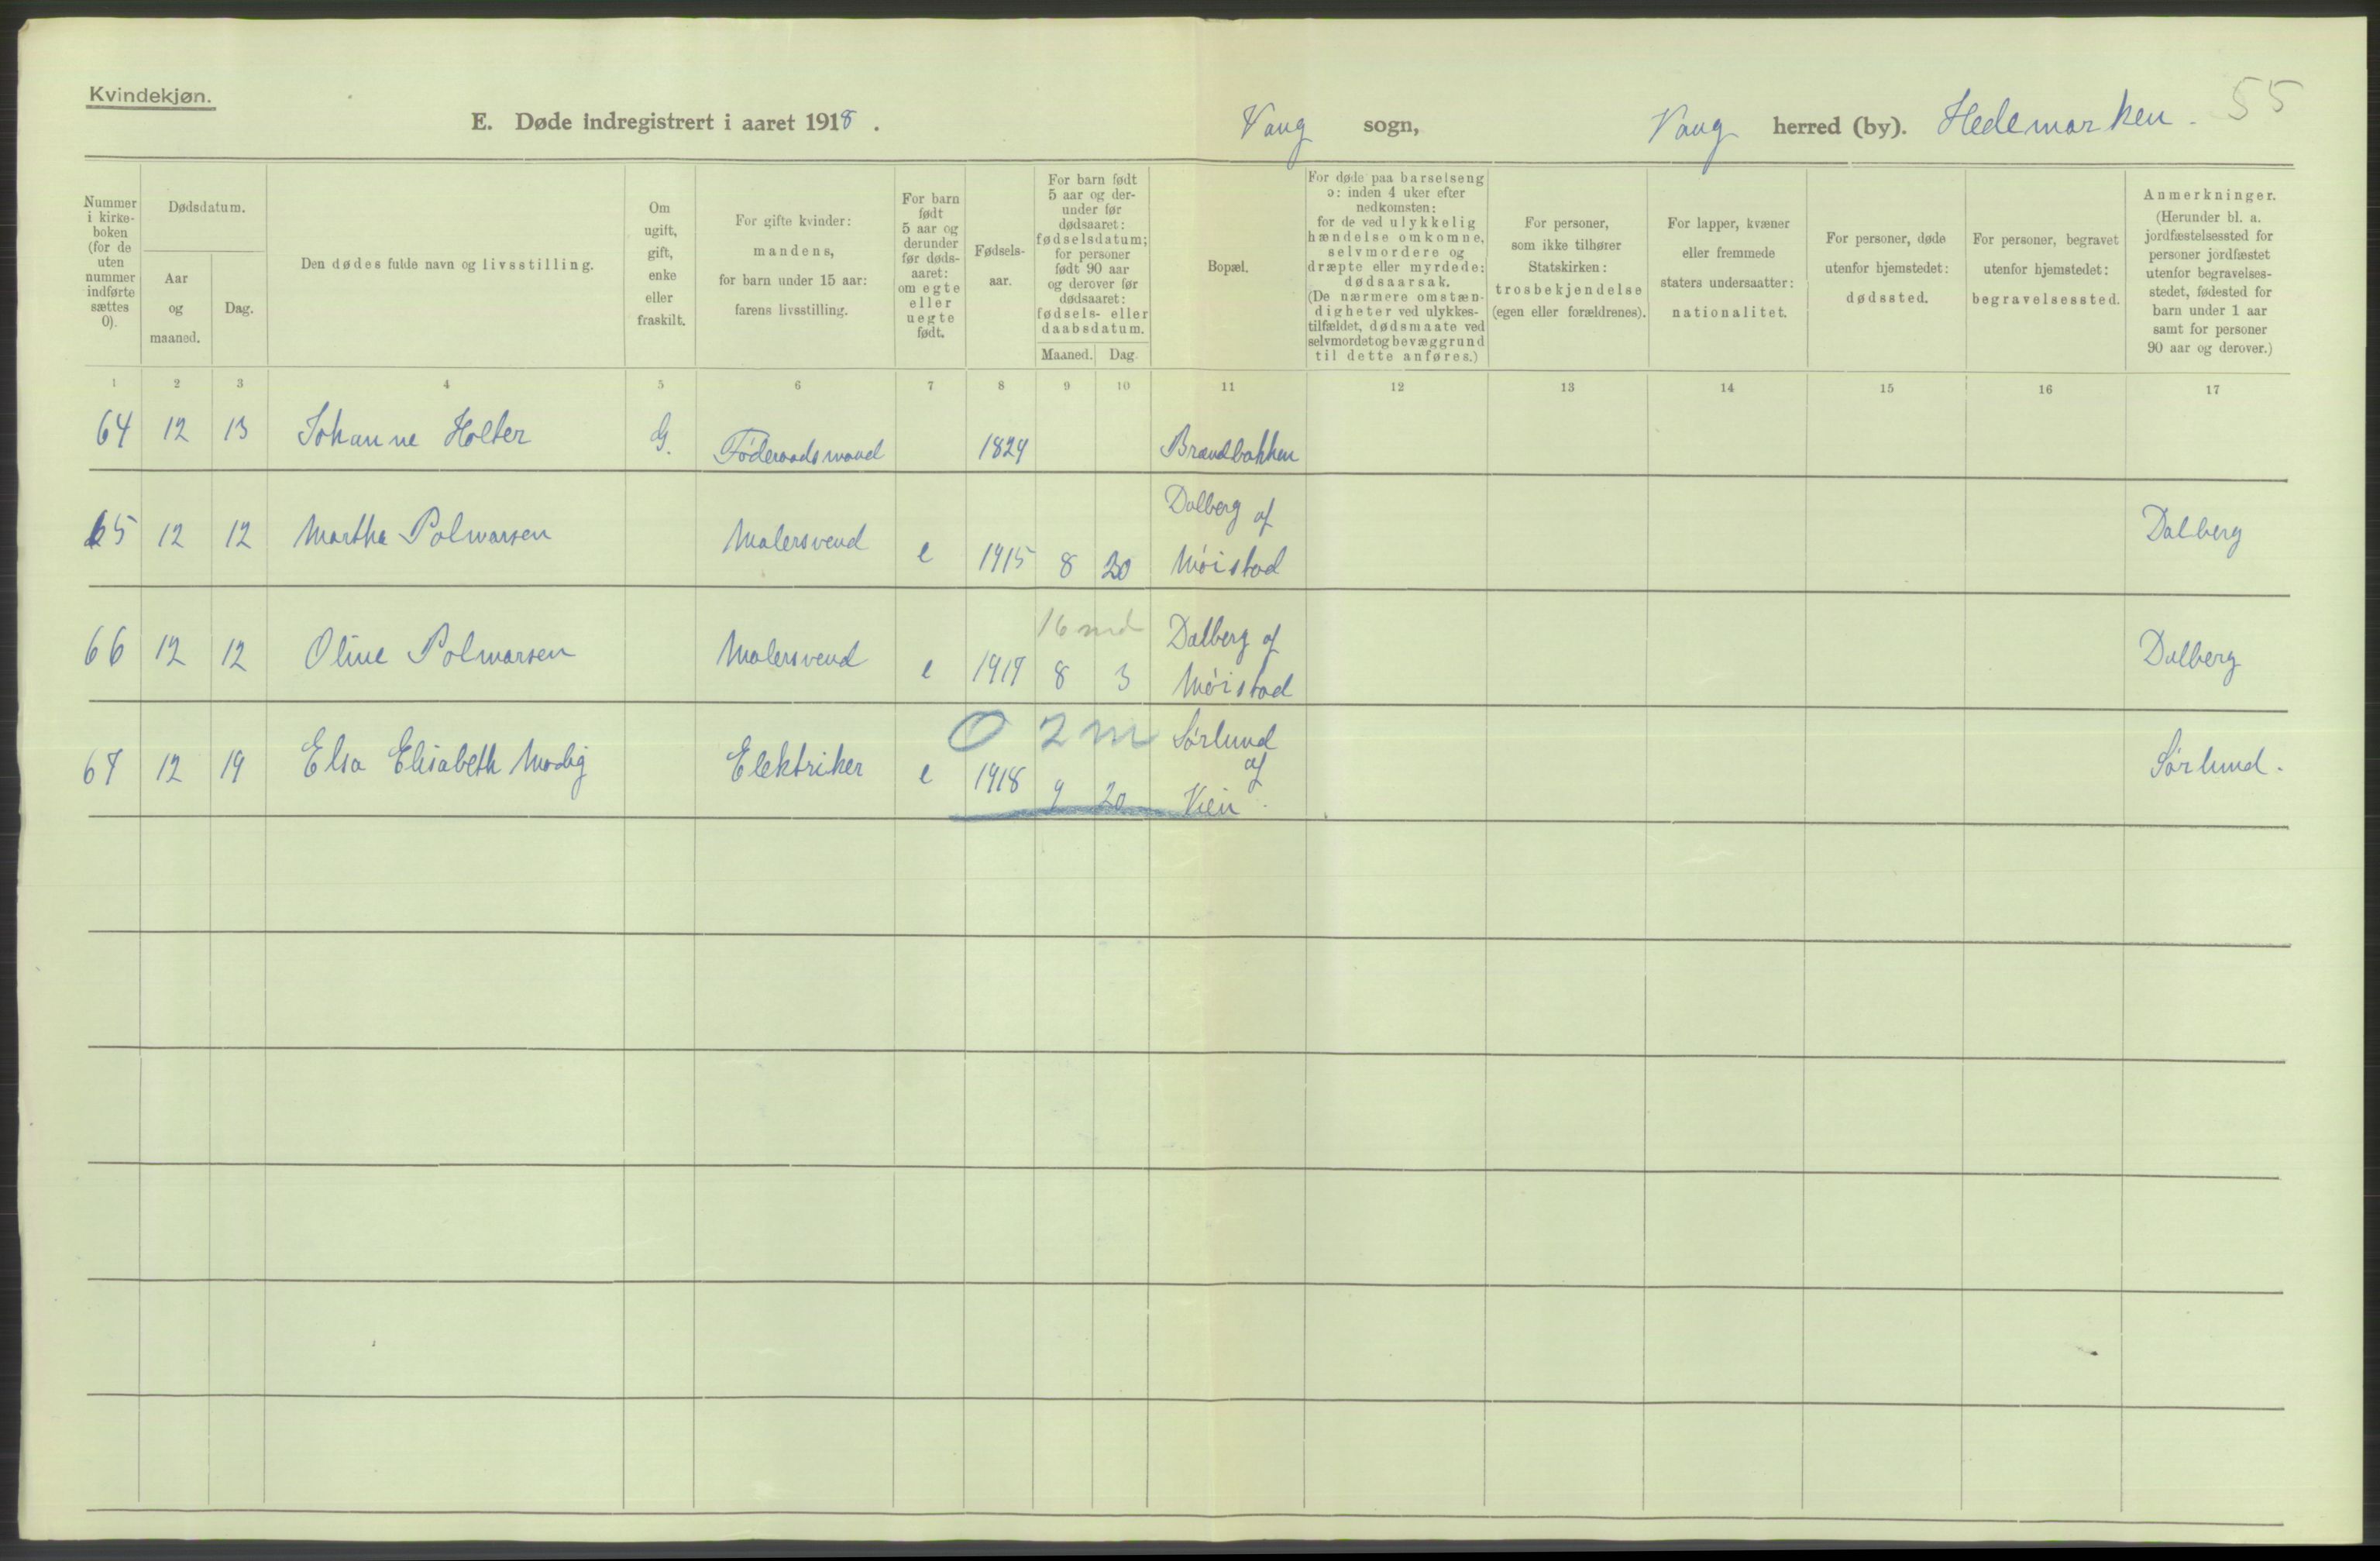 Kvindekjøn.
E. Døde indregistrert i aaret 1918. Vang sogn, Vang herred (by). Hedemarken. 55
Nummer i kirke-boken (for de uten nummer indførte sættes 0).
Dødsdatum.
Aar og maaned.
Dag.
Den dødes fulde navn og livsstilling.
Om ugift, gift, enke eller fraskilt.
For gifte kvinder: mandens, for barn under 15 aar: farens livsstilling.
For barn født 5 aar og derunder før døds-aaret: om egte eller uegte født.
Fødsels-aar.
For barn født 5 aar og der-under før dødsaaret: fødselsdatum; for personer født 90 aar og derover før dødsaaret: fødsels- eller daabsdatum.
Maaned. Dag.
Bopæl.
For døde paa barselseng ɔ: inden 4 uker efter nedkomsten: for de ved ulykkelig hændelse omkomne, selvmordere og dræpte eller myrdede: dødsaarsak. (De nærmere omstæn-digheter ved ulykkes-tilfældet, dødsmaate ved selvmordet og bevæggrund til dette anføres.)
For personer, som ikke tilhører Statskirken: trosbekjendelse (egen eller forældrenes).
For lapper, kvæner eller fremmede staters undersaatter: nationalitet.
For personer, døde utenfor hjemstedet: dødssted.
For personer, begravet utenfor hjemstedet: begravelsessted.
Anmerkninger. (Herunder bl. a. jordfæstelsessted for personer jordfæstet utenfor begravelses-stedet, fødested for barn under 1 aar samt for personer 90 aar og derover.)
1 2 3 4 5 6 7 8 9 10 11 12 13 14 15 16 17
64 12 13 Johanne Holter G. Føderaadsmand 1824 Brændbakken
65 12 12 Martha Polmarsen Malersvend e 1915 8 20 Dalberg af Møistad Dalberg
16 md
66 12 12 Oline Polmarsen Malersvend e 1917 8 3 Dalberg af Møistad Dalberg
0 2 m
67 12 19 Elsa Elisabeth Modig Elektriker e 1918 9 20 Sørlund af Vien. Sørlund.